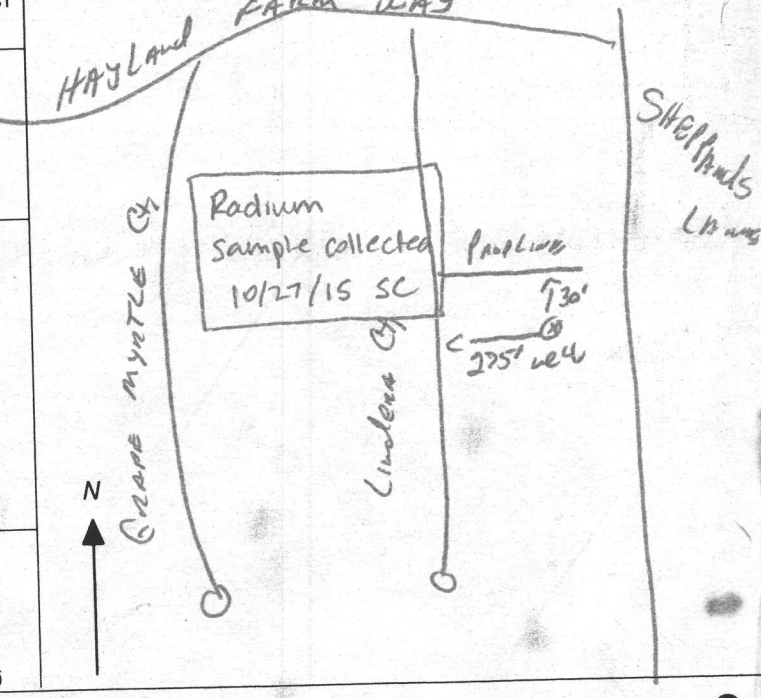 HAYLAND FARM WAY
SHEPPARDS
CRAPE MYRTLE Ct
Radium
sample collected
10/27/15 SC
PROP Line
30'
275' well
Lindera Ct
N